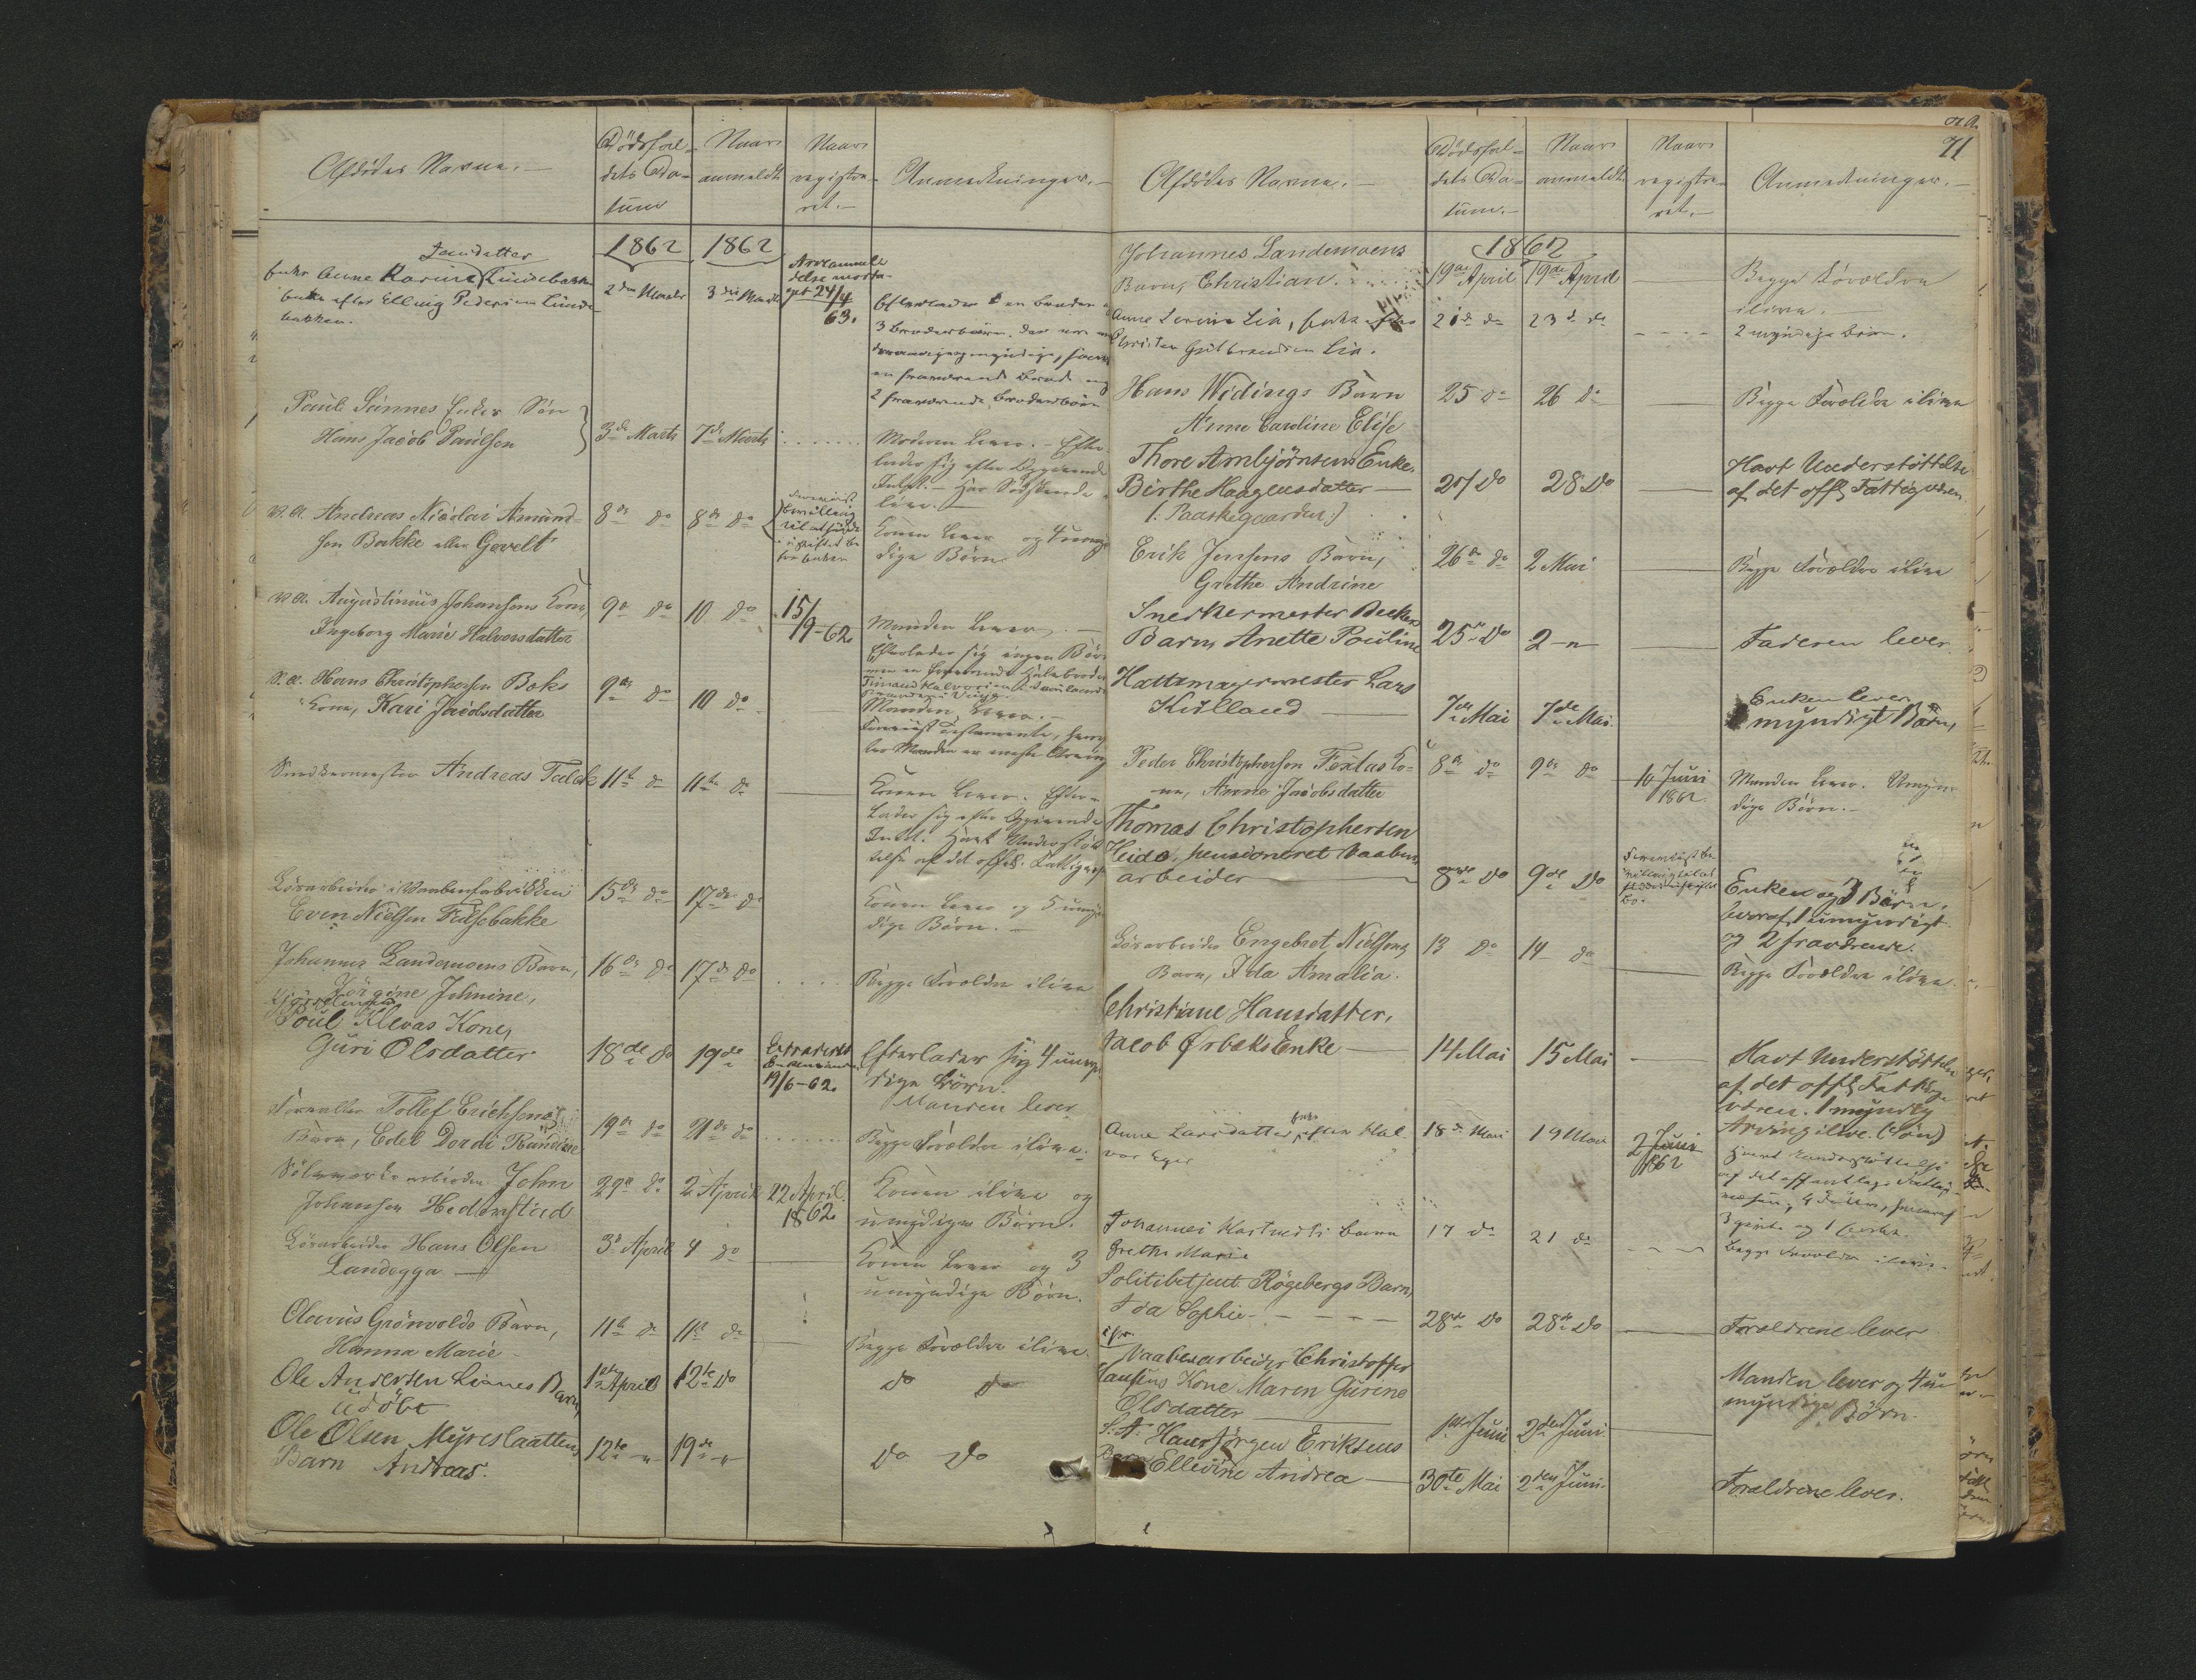 Afdödes Navne.
Dödsfal-
dets Da-
tum
Naar
anmeldt
Naar
registre-
ret.
Anmerkninger.
1862
1862
Jansdatter
Enke Anne Karine Lundebakke
Enke efter Ellevig Pedersen Lunde
bakken.
2den Marts
3die Marts
Arveanmel
delse
24/4
63.
Efterlader en Broder
3 Broderbørn, der ere
myndige, samt
en fraværende Broder og
2 fraværende Broderbørn
Paul Sannes Enkes Søn
Hans Jacob Paulsen
3de Marts
7de Marts
Moderen lever. Efter-
lader sig efter Opgivende
Intet. Har Södskende
live.
v.A. Andreas Nicolai Amund-
sen Bakke eller Gevelt
8de do
8de do
Foreviist
Bevilling
til at sidde
i uskiftet Bo
for Enken
Konen lever og 4 umyn
dige Börn
v.A. Augustinius Johansens Kone,
Ingeborg Marie Halvorsdatter
9de do
10 do
15/9-62
Manden lever.
Efterlader sig ingen Börn
men en Halvbroder
V.A. Hans Christophersen Beks
Kone, Kari Jacobsdatter
9de do
10 do
Manden lever.
Foreviist Testamente, hvor
ved Manden er eneste Arving
Snedkermester Andreas Falck
11te do
11te do
Konen lever. Efter-
lader sig efter Opgivende
Intet. Havt Understöt
telse af det offtl. Fattigvæsen
Lösarbeider i Vaabenfabrikken
Even Nielsen Fulsebakke
15de do
17de do
Konen lever og 5 umyn
dige Börn.
Johannes Landemoens Barn,
Jörgine Johnine,
16de do
17de do
Begge Forældre ilive
Poul Klevas Kone,
Guri Olsdatter
18de do
19de
Extraderet
Enkemanden
19/6-62.
Efterlader sig 4 umyn-
dige Börn.
Manden lever
Formulter Tollef Erichsens
Barn, Edel Dordi Randine
19de do
21de do
Begge Forældre ilive.
Sölvverksarbeider John
Johansen Hedenstad
29de do
2 April
22 April
1862
Konen ilive og
umyndige Börn.
Lösarbeider Hans Olsen
Landegga
3de April
4 do
Konen lever og 3
umyndige Börn.
Olavus Grönvolds Barn,
Hanna Marie
11te do
11te do
Begge Forældre ilive.
Ole Andersen Lianes Barn,
udöbt
1ste April
12te Do
do do
Ole Olsen Myreslaattens
Barn Andreas.
12te "
19de "
do do
71
Afdödes Navne.
Dödsfal-
dets Da-
tum.
Naar
anmeldt
Naar
registre-
ret.
Anmerkninger.
1862
Johannes Landemoens
Barn, Christian.
19de April
19de April
Begge Forældre
ilive.
Anne Lia, Enke efter
Christen Gulbrandsen Lia.
21de do
23de do
2 myndige Börn.
Hans Widings Barn
Anne Caroline Elise
25 do
26 do
Begge Forældre ilive
Thore Arnbjörnsens Enke
Birthe Haagensdatter
/: Paaskegaarden :/
27 Do
28 Do
Havt Understöttelse
af det offtl Fattigvæsen
Erik Jensens Barn,
Grethe Andrine
26de do
2 Mai
Begge Forældre ilive
Snedkermester Beckers
Barn, Anette Pouline
25de Do
2 "
Faderen lever.
Hattemagermester Lars
Kulland
7de Mai
7de Mai
Enken lever
myndigt Barn,
Peder Christophersen Textas Ko-
ne, Anne Jacobsdatter
8de do
9de do
10 Juni
1862.
Manden lever. Umyn-
dige Börn.
Thomas Christophersen
Heida, pensioneret Vaaben
arbeider
8de Do
9de Do
Foreviist Be-
villing til at
sidde i uskiftet
Bo.
Enken og 3 Börn,
hvoraf 1 umyndigt
og 2 fraværende.
Lösarbeider Engebret Nielsens
Barn, Ida Amalia.
13 Do
14 do
Begge Forældre ilive.
Christiane Hansdatter,
Jacob Ørbeks Enke
14 Mai
15 Mai
Havt Understöttelse
af det offtl Fattig-
væsen. 1 myndig
Arving ilive. (Sön)
Anne Larsdatter Enke efter Hal-
vor Eger
18de Mai
19 Mai
2 Juni
1862
Havt Understöttelse
af det offentlige Fattig-
væsen, 4 Börn, hvoraf
3 gifte og 1 Enke.
Johannes Hartvedts Barn
Grethe Marie
17 do
21 do
Begge Forældre ilive.
Politibetjent Rögebergs Barn,
Ida Sophie
28de Do
28de Do
Forældrene lever
Vaabenarbeider Christoffer
Clausens Kone Maren Gurine
Olsdatter
1ste Juni
2den Juni
Manden lever og 4 u
myndige Börn.
S.A. Hans Jörgen Eriksens
Barn Ellevine Andrea
30te Mai
2den Juni
Forældrene lever.